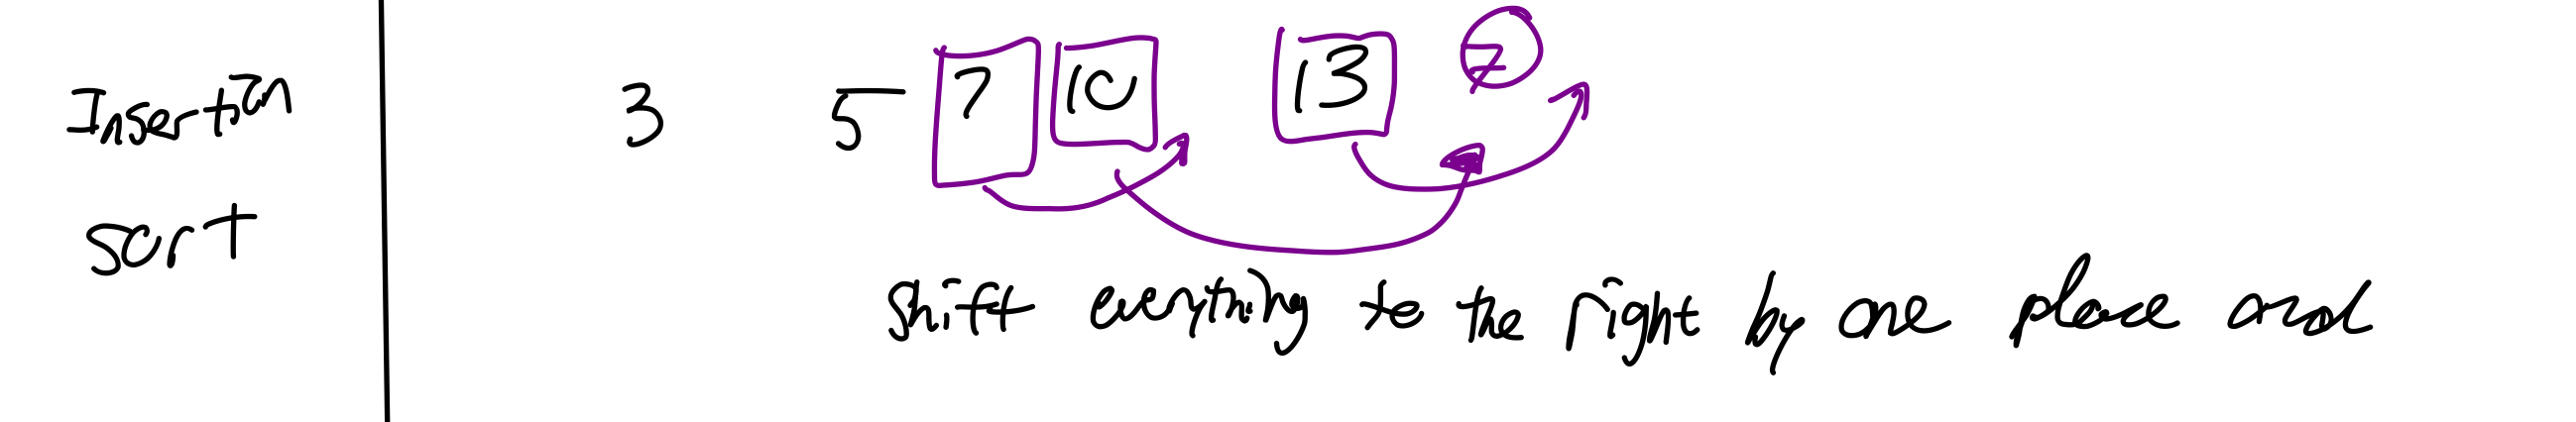 Insertion
sort
3 5 7 10 13 7
Shift everything to the right by one place and